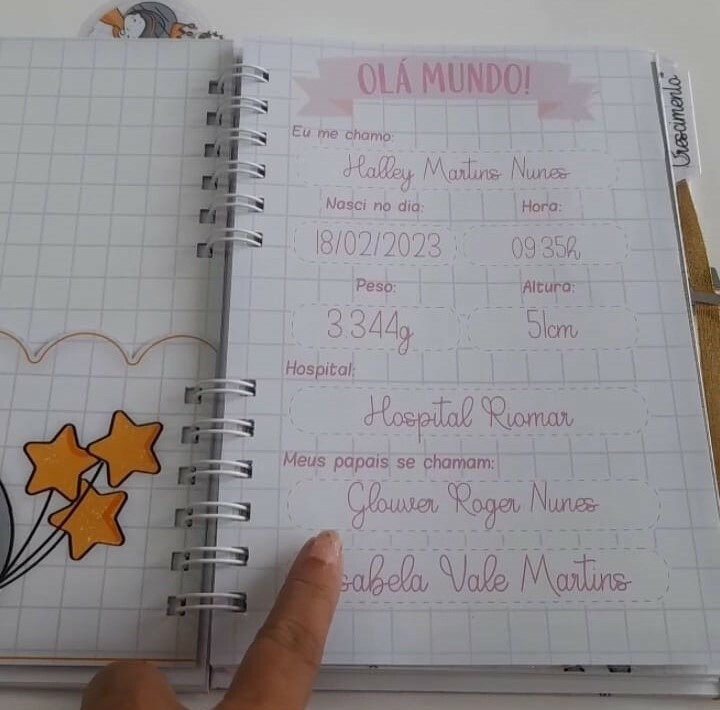 OLÁ MUNDO!
Crescimento
Eu me chamo:
Halley Martins Nunes
Nasci no dia: Hora:
18/02/2023 09:35h
Peso: Altura:
3.344g 51cm
Hospital:
Hospital Riomar
Meus papais se chamam:
Glouver Roger Nunes
sabela Vale Martins